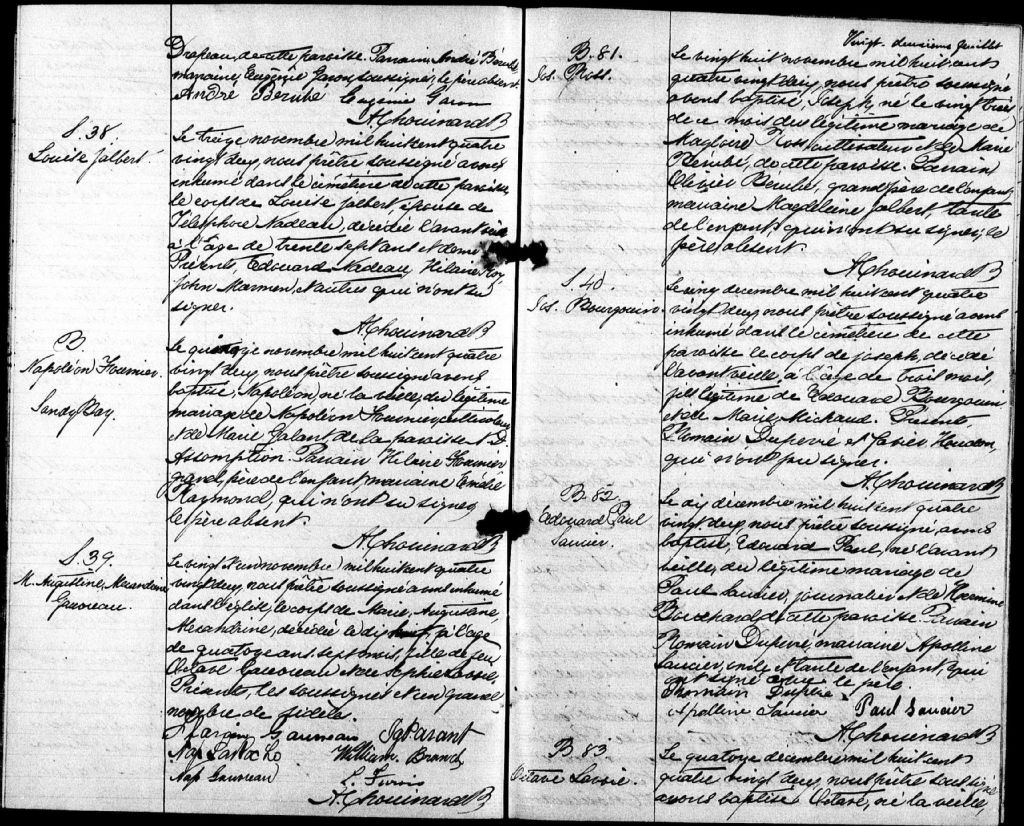 Drapeau, de cette paroisse. Parrain, André Bérubé
marraine, Eugénie Garon, soussignés, le père absent.
André Bérubé Eugénie Garon
A Chouinard B
S. 38.
Louise Jalbert.
Le treize novembre mil huit cent quatre
vingt deux, nous prêtre soussigné avons
inhumé dans le cimetière de cette paroisse
le corps de Louise Jalbert, épouse de
Télesphore Nadeau, décédée l'avant veille
à l'âge de trente sept ans et demi
Présents, Edouard Nadeau, Hilaire Roy,
John Marmen, et autres qui n'ont su
signer.
A Chouinard B
B
Napoléon Fournier.
Sandy Bay.
Le quinze novembre mil huit cent quatre
vingt deux, nous prêtre soussigné avons
baptisé, Napoléon, né la veille, du légitime
mariage de Napoléon Fournier, cultivateur
et de Marie Galant de la paroisse N. D.
Assomption. Parrain Hilaire Fournier
grand-père de l'enfant marraine
Raymond, qui n'ont su signer,
le père absent.
A Chouinard B
S. 39.
M. Augustine, Alexandrine
Gauvreau.
Le vingt novembre mil huit cent quatre
vingt deux, nous prêtre soussigné avons inhumé
dans l'église, le corps de Marie, Augustine,
Alexandrine, décédée le dix à l'âge
de quatorze ans sept mois, fille de feu
Octave Gauvreau et de Sophie
Présents, les soussignés et un grand
nombre de fidèles.
Gauvreau
Nap William
Nap Gauvreau
A. Chouinard B
B. 81.
Jos. Ross.
Vingt-deuxième feuillet
Le vingt huit novembre mil huit cent
quatre vingt deux, nous prêtre soussigné
avons baptisé, Joseph, né le vingt trois
de ce mois du légitime mariage de
Magloire Ross cultivateur et de Marie
Bérubé, de cette paroisse. Parrain
Olivier Bérubé, grand père de l'enfant,
marraine Magdeleine Jalbert, tante
de l'enfant qui n'ont su signer, le
père absent.
A Chouinard B
S. 40.
Jos. Bourgouin.
Le cinq décembre mil huit cent quatre
vingt deux, nous prêtre soussigné avons
inhumé dans le cimetière de cette
paroisse le corps de Joseph, décédé
l'avant veille, à l'âge de trois mois,
fils légitime de Edouard Bourgouin
et de Marie Michaud. Présents,
Romain Duperré et
qui n'ont pu signer.
A Chouinard B
B. 82.
Edouard Paul
Saucier.
Le dix décembre mil huit cent quatre
vingt deux, nous prêtre soussigné, avons
baptisé, Edouard Paul, né l'avant
veille, du légitime mariage de
Paul Saucier, journalier et de Hermine
Bouchard de cette paroisse. Parrain
Romain Duperré, marraine Apolline
Saucier, oncle et tante de l'enfant, qui
ont signé avec le père.
Rhomain Duperé
Apolline Saucier Paul Saucier
A Chouinard B
B. 83
Octave Lavoie.
Le quatorze décembre mil huit cent
quatre vingt deux, nous prêtre soussigné
avons baptisé Octave, né la veille,